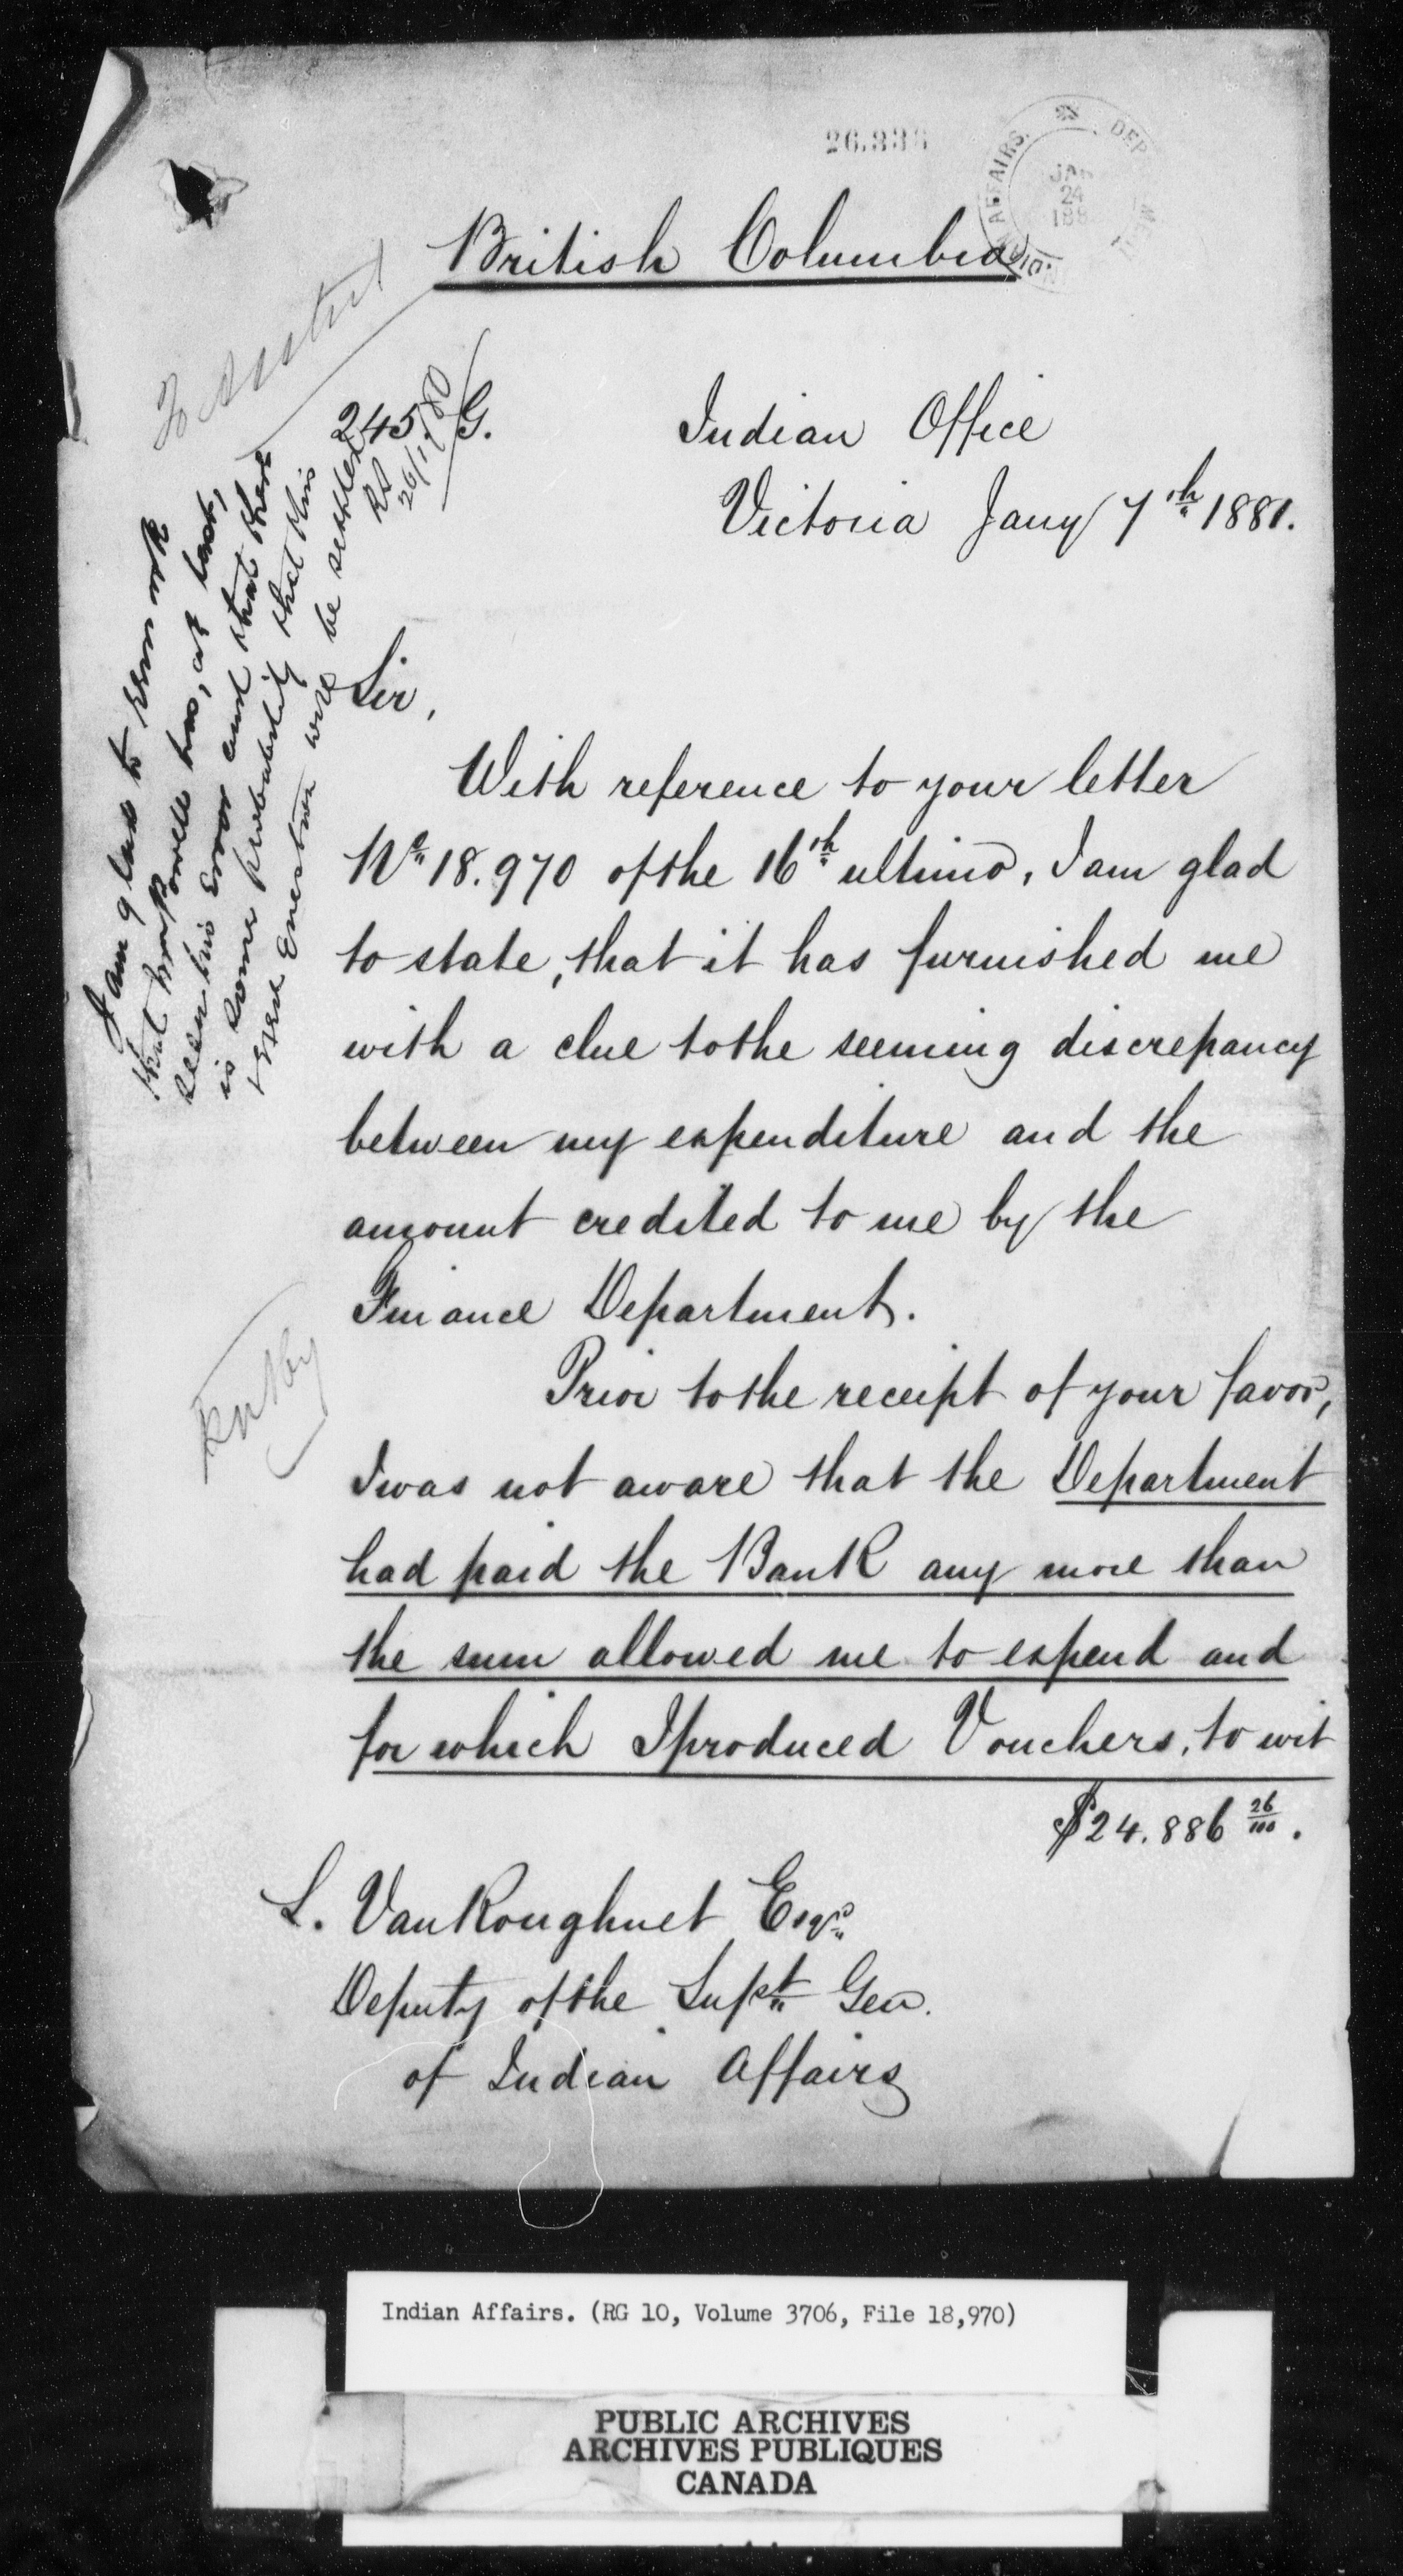 26.338
INDIAN AFFAIRS.
JAN
24
188
British Columbia
245/80 G.
Indian Office
Victoria Jany 7th 1881.
I am glad to
that Powell has, at last,
seen his error and that there
is some probability that this
vexed question will be settled
Sir,
With reference to your letter
No 18.970 of the 16th ultimo, I am glad
to state, that it has furnished me
with a clue to the seeming discrepancy
between my expenditure and the
amount credited to me by the
Finance Department.
Prior to the receipt of your favor,
I was not aware that the Department
had paid the Bank any more than
the sum allowed me to expend and
for which I produced Vouchers, to wit
$24.886 26/100.
L. VanKoughnet Esqr.
Deputy of the Supt. Gen.
of Indian Affairs
Indian Affairs. (RG 10, Volume 3706, File 18,970)
PUBLIC ARCHIVES
ARCHIVES PUBLIQUES
CANADA